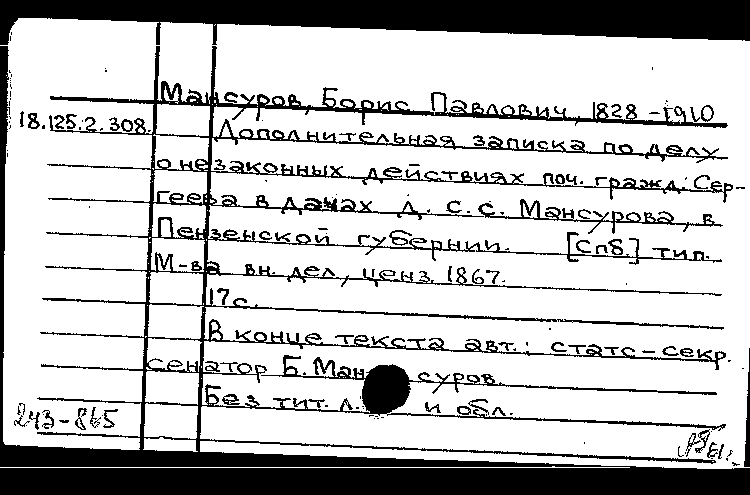 Мансуров, Борис Павлович, 1828-1910
18.125.2.308.
Дополнительная записка по делу
о незаконных действиях поч. гражд. Сер-
геева в дачах д. с. с. Мансурова, в
Пензенской губернии. [Спб.] тип.
М-ва вн. дел, ценз. 1867.
17с.
В конце текста авт.: статс-секр.
сенатор Б. Мансуров.
Без тит. л. и обл.
243-865